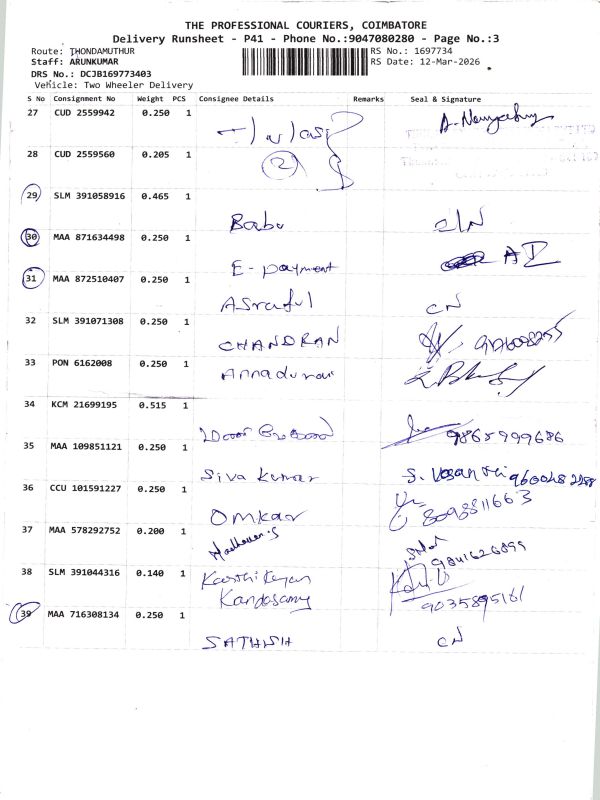 THE PROFESSIONAL COURIERS, COIMBATORE
Delivery Runsheet - P41 - Phone No.:9047080280 - Page No.:3
Route: THONDAMUTHUR RS No.: 1697734
Staff: ARUNKUMAR RS Date: 12-Mar-2026
DRS No.: DCJB169773403
Vehicle: Two Wheeler Delivery
S No Consignment No Weight PCS Consignee Details Remarks Seal & Signature
27 CUD 2559942 0.250 1
28 CUD 2559560 0.205 1
2
29 SLM 391058916 0.465 1
Babu
30 MAA 871634498 0.250 1
E-payment
31 MAA 872510407 0.250 1
Asraful CN
32 SLM 391071308 0.250 1
CHANDRAN
33 PON 6162008 0.250 1
Annadurai
34 KCM 21699195 0.515 1
9865999686
35 MAA 109851121 0.250 1
Siva Kumar
36 CCU 101591227 0.250 1
Omkar 8098811663
37 MAA 578292752 0.200 1
Madhavan.S 9841626899
38 SLM 391044316 0.140 1
Karthikeyan
Kandasamy 9035895161
39 MAA 716308134 0.250 1
SATHISH CN